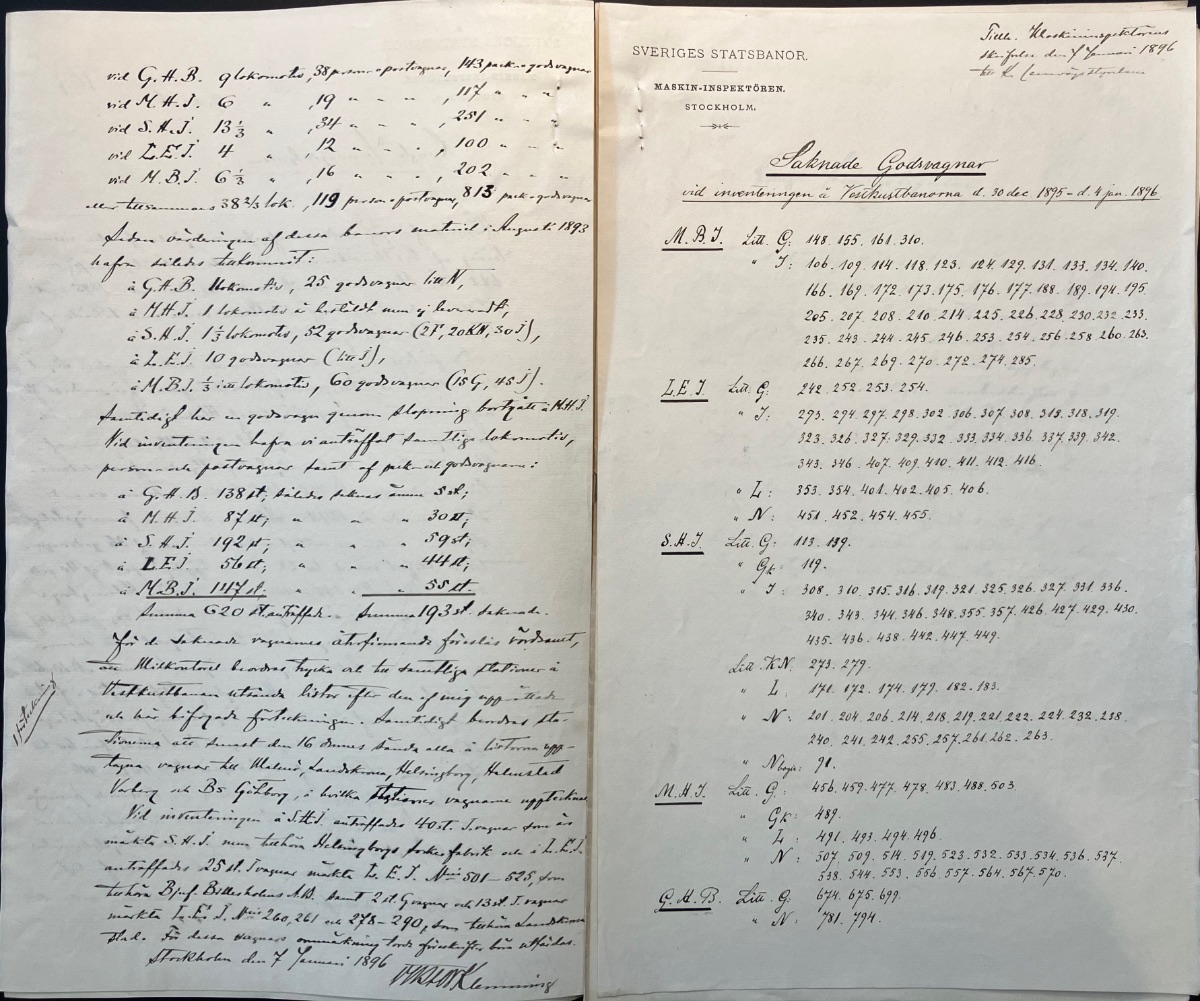 vid G.H.B. 9 lokomotiv, 38 person o postvagnar, 143 pack o godsvagnar
vid M.H.J. 6 " , 19 " " " , 117 " " "
vid S.H.J. 13 1/3 " , 34 " " " , 251 " " "
vid L.E.J. 4 " , 12 " " " , 100 " " "
vid M.B.J. 6 1/3 " , 16 " " " , 202 " " "
eller tillsammans 38 2/3 lok. 119 person o postvagnar, 813 pack o godsvagnar
Sedan värderingen af dessa banors materiel i Augusti 1893
hafva således tillkommit:
à G.H.B. 1 lokomotiv, 25 godsvagnar litt N,
à M.H.J. 1 lokomotiv är bestäldt men ej levereradt,
à S.H.J. 1 1/3 lokomotiv, 52 godsvagnar (2F, 20KN, 30J),
à L.E.J. 10 godsvagnar (litt J),
à M.B.J. 1/3 lokomotiv, 60 godsvagnar (15G, 45J).
Samtidigt har en godsvagn genom slopning bortgått à M.H.J.
Vid inventeringen hafva vi anträffat samtliga lokomotiv,
person- och postvagnar samt af pack- och godsvagnarne:
à G.H.B. 138 st; således saknas ännu 5 st;
à M.H.J. 87 st; " " " 30 st;
à S.H.J. 192 st; " " " 59 st;
à L.E.J. 56 st; " " " 44 st;
à M.B.J. 147 st; " " " 55 st.
Summa 620 st. anträffade. Summa 193 st. saknade.
För de saknade vagnarnes återfinnande föreslås vördsamt,
att Milkontoret beordras trycka och till samtliga stationer à
Vestkustbanan utsända listor efter den af mig upprättade
och här bifogade förteckningen. Samtidigt beordras sta-
tionerna att senast den 16 dennes sända alla à listorna upp-
tagna vagnar till Malmö, Landskrona, Helsingborg, Halmstad
Varberg och Bs Götborg, à hvilka stationer vagnarne uppteckna
Vid inventeringen à S.H.J. anträffades 40 st. J. vagnar som äro
märkta S.H.J. men tillhöra Helsingborgs sockerfabrik och à L.E.J.
anträffades 25 st. J vagnar märkta L.E.J. Nris 501–525, som
tillhöra Bjuf. Billesholms A.B. samt 2 st. G vagnar och 13 st. J. vagnar
märkta L.E.J. Nris 260, 261 och 278–290, som tillhöra Landskrona
stad. För dessa vagnars ommärkning torde föreskrifter böra utfärdas.
Stockholm den 7 Januari 1896
Klemming
1 förteckning
Tillh. Maskininspektörens
skrifvelse den 7 Januari 1896
till K. Jernvägsstyrelsen
SVERIGES STATSBANOR.
MASKIN-INSPEKTÖREN.
STOCKHOLM.
Saknade Godsvagnar
vid inventeringen å Vestkustbanorna d. 30 dec. 1895 – d. 4 jan. 1896
M.B.J. Litt. G: 148. 155. 161. 310.
" J: 106. 109. 114. 118. 123. 124. 129. 131. 133. 134. 140.
166. 169. 172. 173. 175. 176. 177. 188. 189. 194. 195.
205. 207. 208. 210. 214. 225. 226. 228. 230. 232. 233.
235. 243. 244. 245. 246. 253. 254. 256. 258. 260. 263.
266. 267. 269. 270. 272. 274. 285.
L.E.J. Litt. G: 242. 252. 253. 254.
" J: 293. 294. 297. 298. 302. 306. 307. 308. 313. 318. 319.
323. 326. 327. 329. 332. 333. 334. 336. 337. 339. 342.
343. 346. 407. 409. 410. 411. 412. 416.
" L: 353. 354. 401. 402. 405. 406.
" N: 451. 452. 454. 455.
S.H.J. Litt. G: 113. 139.
" Gk: 119.
" J: 308. 310. 315. 316. 319. 321. 325. 326. 327. 331. 336.
340. 343. 344. 346. 348. 355. 357. 426. 427. 429. 430.
435. 436. 438. 442. 447. 449.
Litt. KN: 273. 279.
" L: 171. 172. 174. 179. 182. 183.
" N: 201. 204. 206. 214. 218. 219. 221. 222. 224. 232. 238.
240. 241. 242. 255. 257. 261. 262. 263.
" N bogie: 91.
M.H.J. Litt. G: 456. 459. 477. 478. 483. 488. 503.
" Gk: 489.
" L: 491. 493. 494. 496.
" N: 507. 509. 514. 519. 523. 532. 533. 534. 536. 537.
538. 544. 553. 556. 557. 564. 567. 570.
G.H.B. Litt. G: 674. 675. 699.
" N: 781. 794.